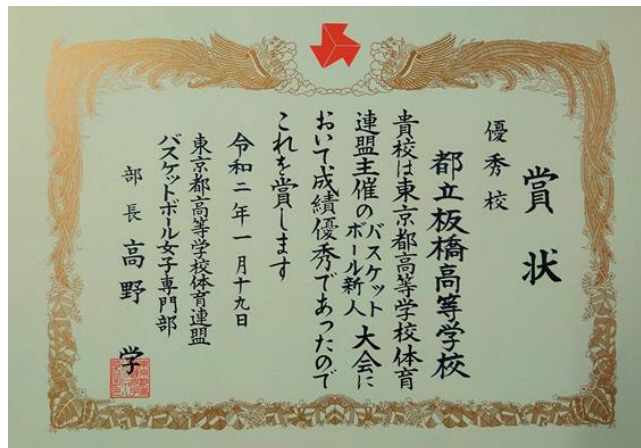 賞状
優秀校
都立板橋高等学校
貴校は東京都高等学校体育
連盟主催のバスケットボール新人大会に
おいて、成績優秀であったので
これを賞します
令和二年一月十九日
東京都高等学校体育連盟
バスケットボール女子専門部
部長 高野 学